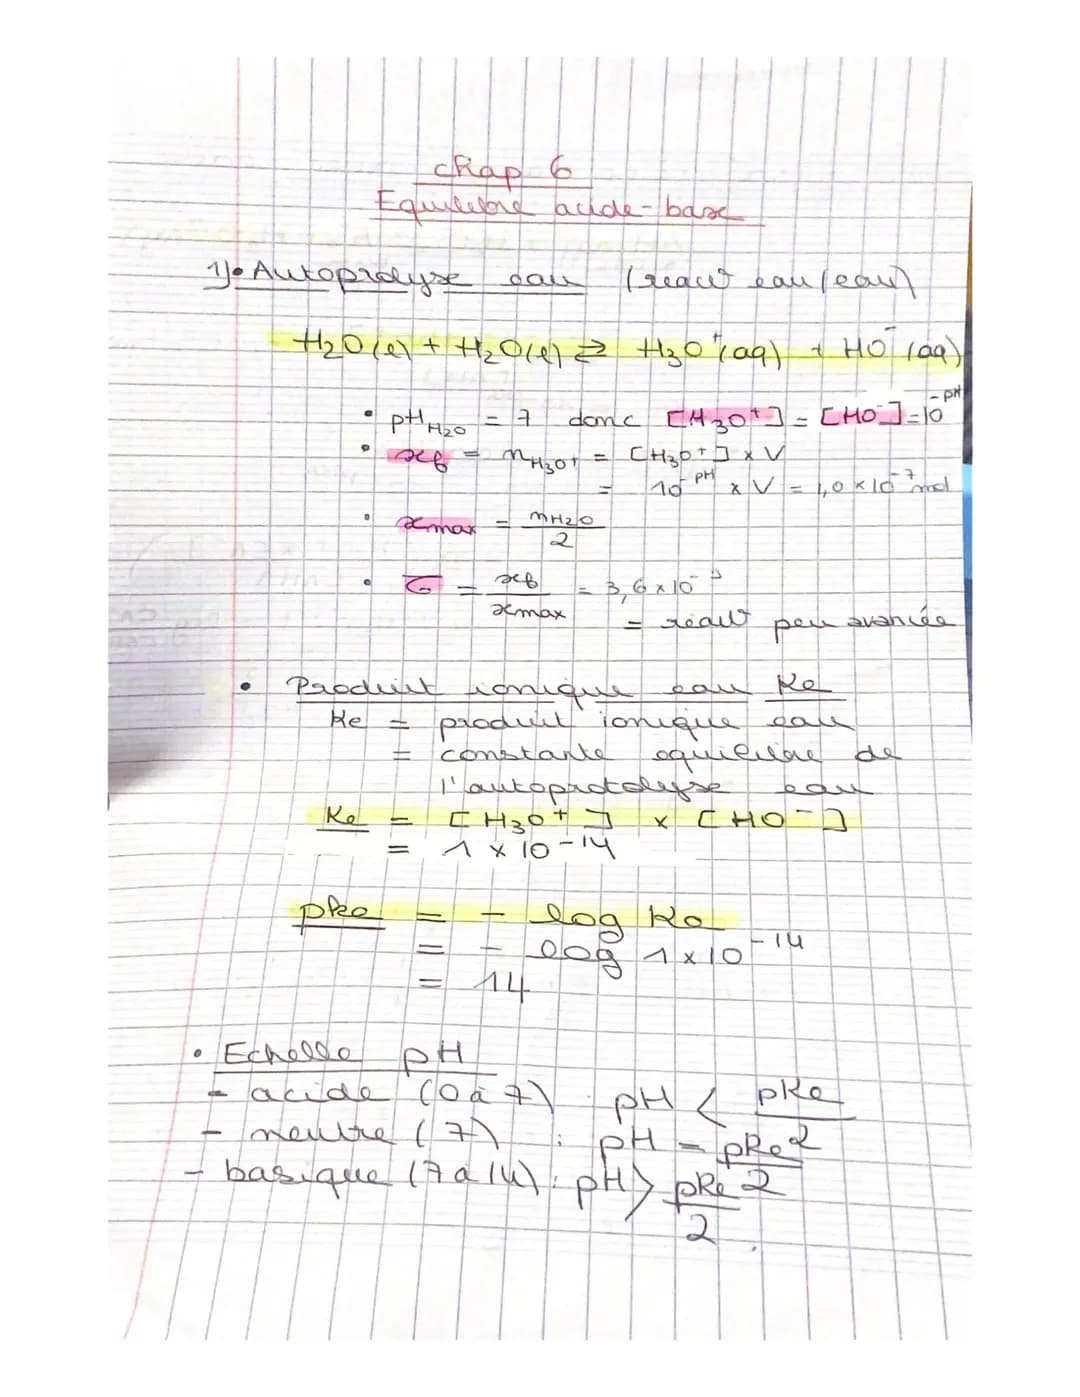 chap 6
Equilibre acide-base
1) • Autoprolyse eau (react eau/eau)
H₂O(l) + H₂O(l) ⇄ H₃O⁺(aq) + HO⁻(aq)
• pH H₂O = 7 donc [H₃O⁺] = [HO⁻] = 10^-pH
• xf = nH₃O⁺ = [H₃O⁺] x V
= 10^-pH x V = 1,0 x 10⁻⁷ mol
• xmax = nH₂O / 2
• τ = xf / xmax = 3,6 x 10⁻⁹
= réact peu avancée
• Produit ionique eau Ke
Ke = produit ionique eau
= constante equilibre de
l'autoprotolyse eau
Ke = [H₃O⁺] x [HO⁻]
= 1 x 10⁻¹⁴
pke = - log Ke
= - log 1 x 10⁻¹⁴
= 14
• Echelle pH
- acide (0 à 7) : pH < pKe / 2
- neutre (7) : pH = pKe / 2
- basique (7 a 14) : pH > pKe / 2